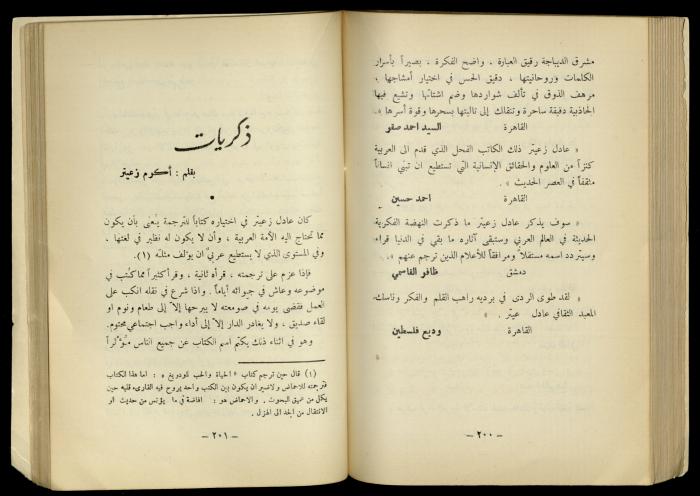 مشرق الديباجة رقيق العبارة ، واضح الفكرة ، بصيراً بأسرار
الكلمات وروحانيتها ، دقيق الحس في اختيار أمشاجها ،
مرهف الذوق في تآلف شواردها وضم اشتاتها وتشيع فيها
الجاذبية دفيقة ساحرة وتنقلك إلى ثالبتها بسحرها وقوة أسرها » .
القاهرة السيد احمد صقر
« عادل زعيتر ذلك الكاتب الفحل الذي قدم الى العربية
كنزاً من العلوم والحقائق الإنسانية التي تستطيع ان تبني انساناً
مثقفاً في العصر الحديث » .
القاهرة احمد حسين
« سوف يذكر عادل زعيتر ما ذكرت النهضة الفكرية
الحديثة في العالم العربي وستبقى آثاره ما بقي في الدنيا قراء
وسيتردد اسمه مستقلاً ومرافقاً للأعلام الذين ترجم عنهم » .
دمشق ظافر القاسمي
« لقد طوى الردى في برديه راهب القلم والفكر وناسك
المعبد الثقافي عادل زعيتر » .
القاهرة وديع فلسطين
- ٢٠٠ -
ذكريات
بقلم : أكرم زعيتر
كان عادل زعيتر في اختياره كتاباً للترجمة يُعنى بأن يكون
مما تحتاج اليه الأمة العربية ، وأن لا يكون له نظير في لغتها ،
وفي المستوى الذي لا يستطيع عربيٌّ ان يؤلف مثله (١) .
فإذا عزم على ترجمته ، قرأه ثانية ، وقرأ كثيراً مما كُتب في
موضوعه وعاش في جوائه أياماً . واذا شرع في نقله انكب على
العمل فقضى يومه في صومعته لا يبرحها إلا إلى طعام ونوم او
لقاء صديق ، ولا يغادر الدار إلا إلى أداء واجب اجتماعي محتوم .
وهو في اثناء ذلك يكتم اسم الكتاب عن جميع الناس مؤثراً
(١) قال حين ترجم كتاب « الحياة والحب للودويغ » : اما هذا الكتاب
فترجمته للاحماض ولا ضير ان يكون بين الكتب واحد يروح فيه القارىء قلبه حين
يكل من عميق البحوث . والاحماض هو : افاضة في ما يؤنس من حديث او
الانتقال من الجد الى الهزل .
- ٢٠١ -